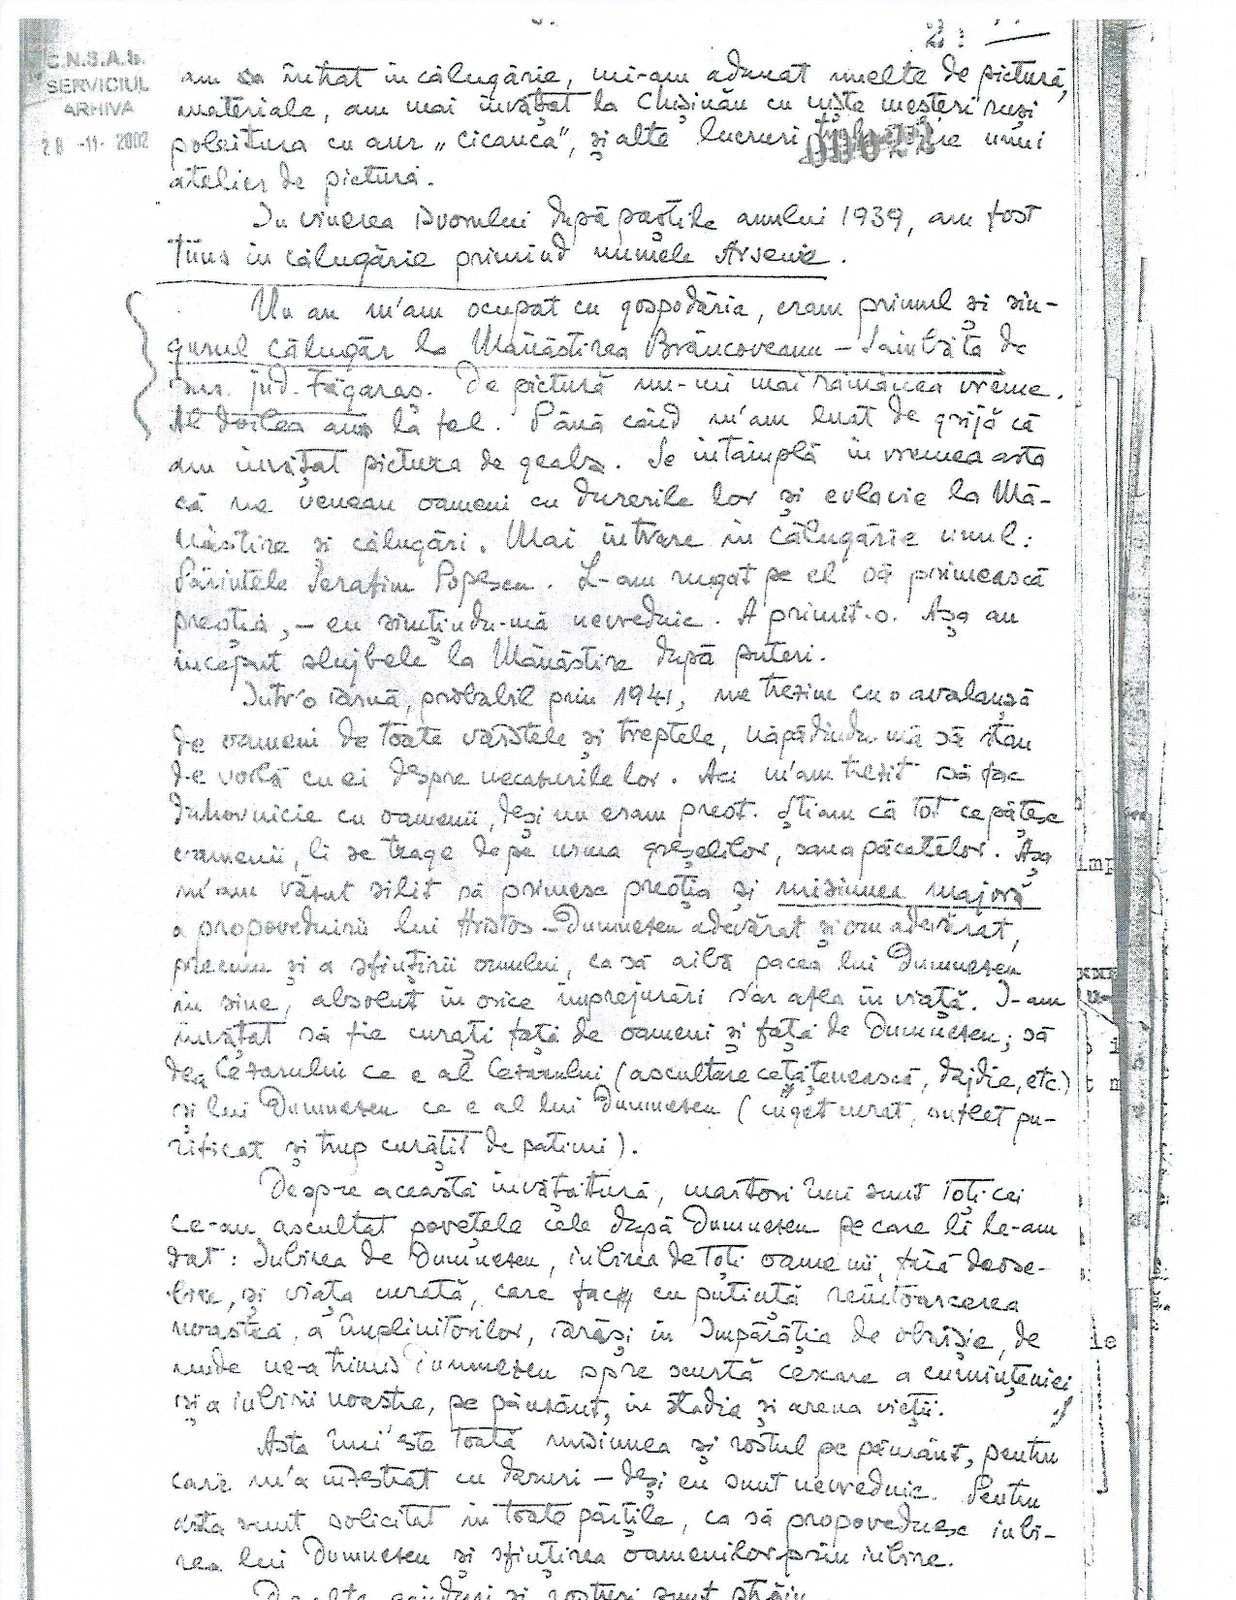 2:
C.N.S.A.S.
SERVICIUL
ARHIVA
28 -11- 2002
am intrat in călugărie, mi-am adunat unelte de pictură,
materiale, am mai învățat la Chișinău cu niște meșteri ruși
poleitura cu aur „cicanca", și alte lucruri unui
atelier de pictură.
In vinerea Isvorului după paștile anului 1939, am fost
tuns in călugărie primind numele Arsenie.
Un an m'am ocupat cu gospodăria, eram primul și sin-
gurul călugăr la Mănăstirea Brâncoveanu – Sâmbăta de
sus. jud. Făgăraș. De pictură nu-mi mai rămânea vreme.
Al doilea an la fel. Până când m'am luat de grijă că
am învățat pictura de geaba. Se întâmplă în vremea asta
că ne veneau oameni cu durerile lor și evlavie la Mă-
năstire și călugări. Mai intrare în călugărie unul:
Părintele Serafim Popescu. L-am rugat pe el să primească
preoția, – eu simțindu-mă nevrednic. A primit-o. Așa au
inceput slujbele la Mănăstire după puteri.
Intr'o iarnă, probabil prin 1941, ne trezim cu o avalanșă
de oameni de toate vârstele și treptele, năpădindu-mă să stau
de vorbă cu ei despre necazurile lor. Aci m'am trezit să fac
duhovnicie cu oamenii, deși nu eram preot. Știam că tot ce pățesc
oamenii, li se trage depe urma greșelilor, sau a păcatelor. Așa
m'am văzut silit să primesc preoția și misiunea majoră
a propoveduirii lui Hristos – Dumnezeu adevărat și om adevărat,
precum și a sfințirii omului, ca să aibă pacea lui Dumnezeu
in sine, absolut în orice împrejurări s'ar afla în viață. I-am
învățat să fie curați față de oameni și față de Dumnezeu; să
dea Cezarului ce e al Cezarului (ascultare cetățenească, dajdie, etc.)
și lui Dumnezeu ce e al lui Dumnezeu (cuget curat, suflet pu-
rificat și trup curățit de patimi).
Despre această învățătură, martori îmi sunt toți cei
ce-au ascultat povețele cele după Dumnezeu pe care li le-am
dat: Iubirea de Dumnezeu, iubirea de toți oamenii, fără deose-
bire, și viața curată, care fac cu putință reîntoarcerea
noastră, a împlinitorilor, iarăși în Impărăția de obârșie, de
unde ne-a trimis Dumnezeu spre scurtă cercare a cumințeniei
și a iubirii noastre, pe pământ, in stadia și arena vieții.
Asta îmi este toată misiunea și rostul pe pământ, pentru
care m'a inzestrat cu daruri – deși eu sunt nevrednic. Pentru
asta sunt solicitat in toate părțile, ca să propoveduesc iubi-
rea lui Dumnezeu și sfințirea oamenilor prin iubire.
De alte gânduri și rosturi sunt străin.
imp
xxx
t m
le